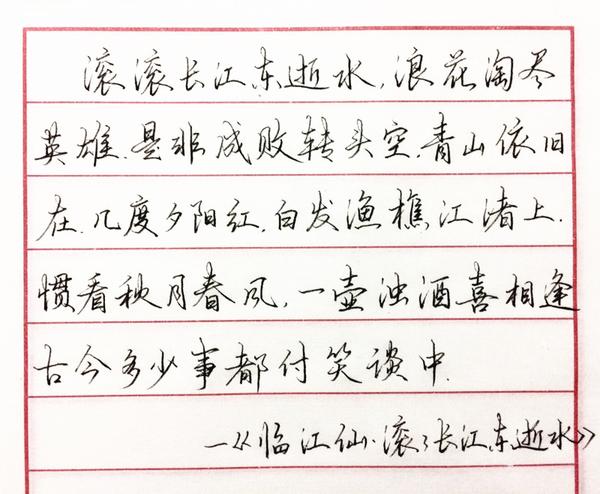 滚滚长江东逝水,浪花淘尽
英雄.是非成败转头空.青山依旧
在.几度夕阳红.白发渔樵江渚上.
惯看秋月春风,一壶浊酒喜相逢
古今多少事都付笑谈中.
—《临江仙·滚々长江东逝水》